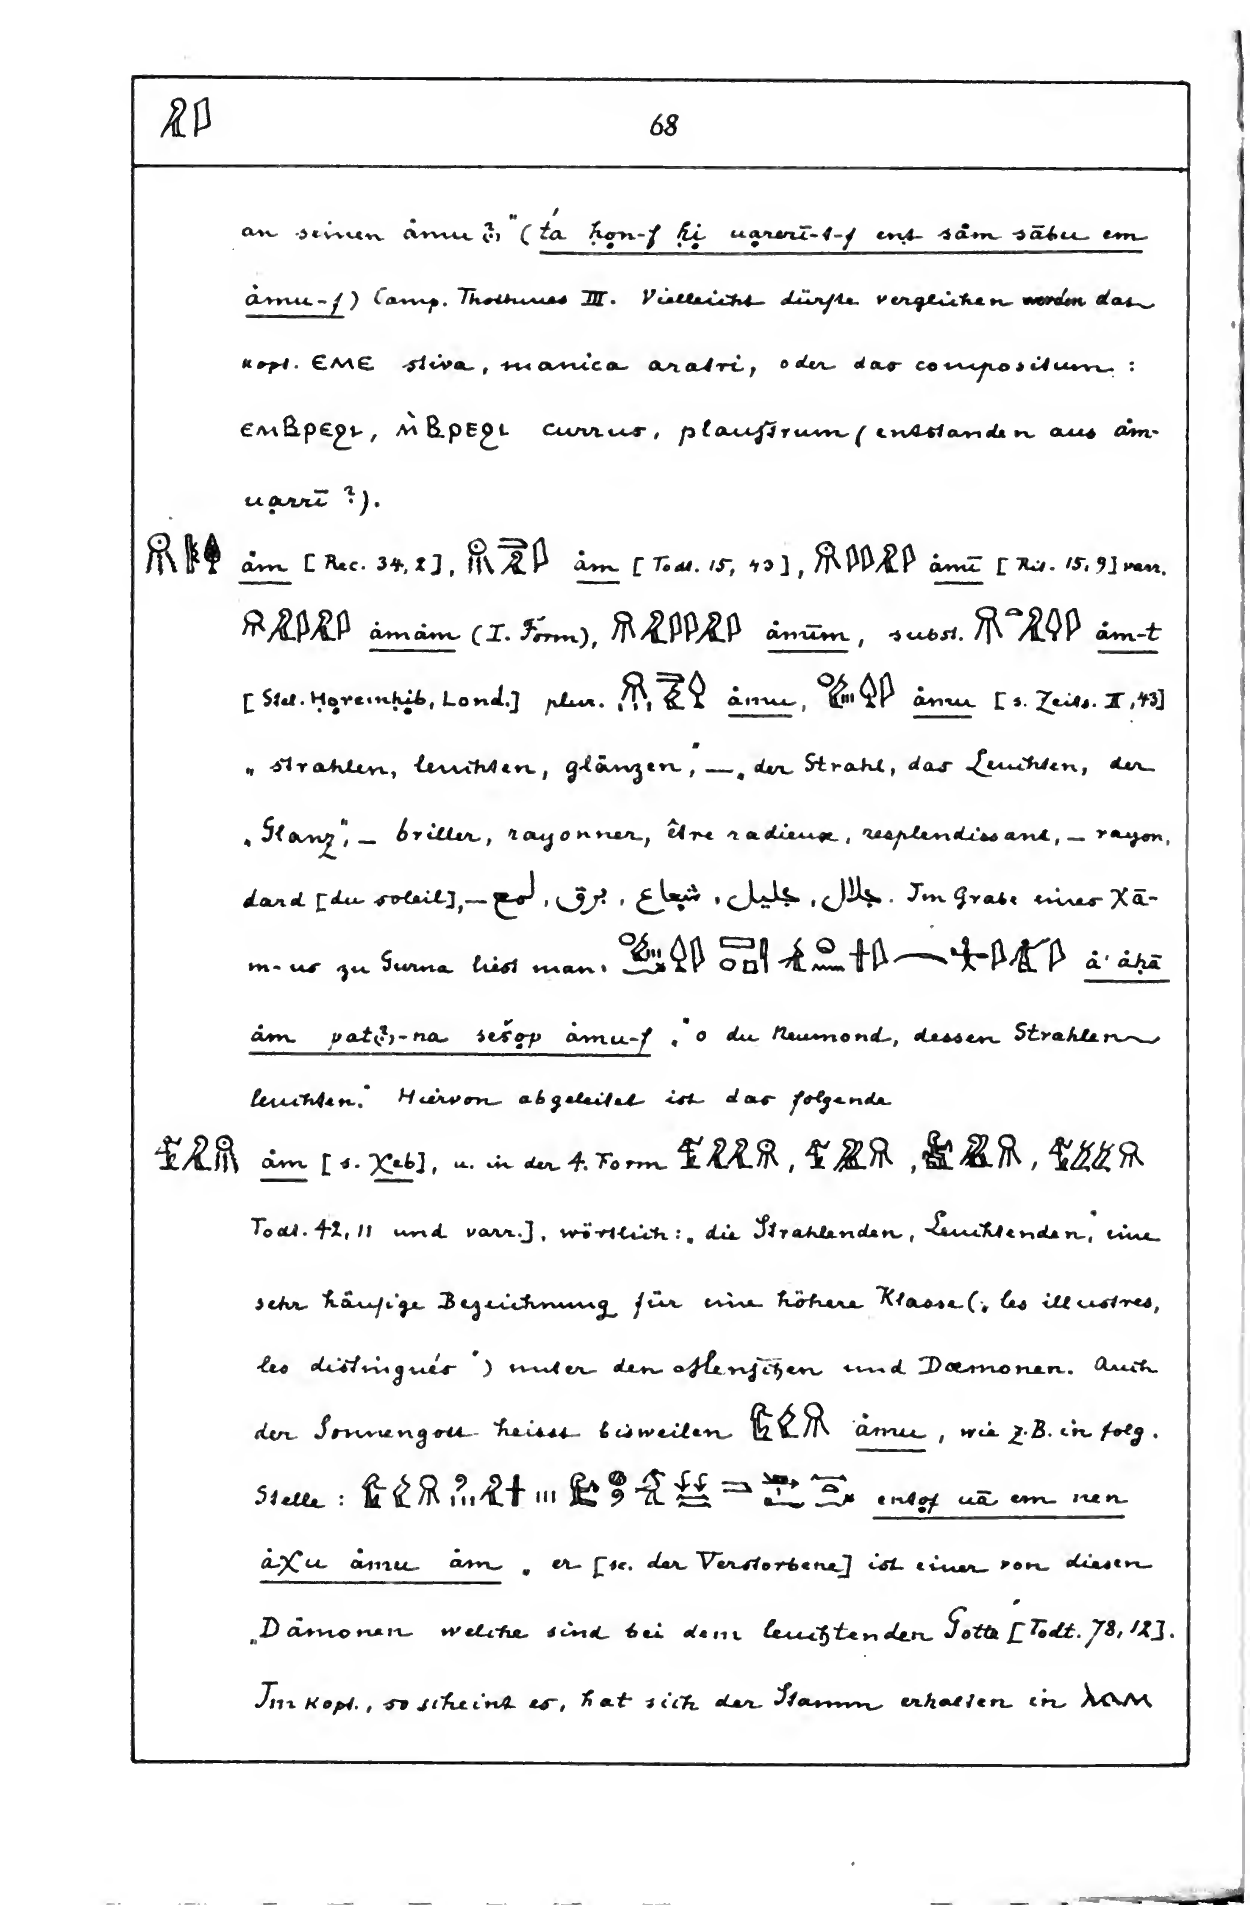 68
an seinen åmu" (tá ḥọn-f ḥị uạrerī-t-f ent såm sābu em
åmu-f) Camp. Thothmes III. Vielleicht dürfte verglichen werden das
kopt. ⲈⲘⲈ stiva, manica aratri, oder das compositum :
ⲉⲙⲃⲣⲉϩⲓ, ⲙ̀ⲃⲣⲉϩⲓ currus, plaustrum (entstanden aus åm-
uạrrī ?).
åm [Rec. 34, 2], åm [Todt. 15, 43], åmī [Rit. 15, 9] varr.
åmåm (I. Form), åmūm, subst. åm-t
[Stel. Ḥọremḥịb, Lond.] plur. åmu, åmu [s. Zeits. II, 43]
„strahlen, leuchten, glänzen", — „der Strahl, das Leuchten, der
„Glanz", — briller, rayonner, être radieux, resplendissant, — rayon,
dard [du soleil], — لمع, برق, شعاع, جليل, جلال. Im Grabe eines Χā-
m-us zu Gurna liest man: å' åḥā
åm pat-na sešọp åmu-f „o du Neumond, dessen Strahlen
leuchten." Hiervon abgeleitet ist das folgende
åm [s. Χeb], u. in der 4. Form
Todt. 42, 11 und varr.], wörtlich: „die Strahlenden, Leuchtenden," eine
sehr häufige Bezeichnung für eine höhere Klasse („les illustres,
les distingués") unter den Menschen und Dæmonen. Auch
der Sonnengott heisst bisweilen åmu, wie z.B. in folg.
Stelle : entọf uā em nen
åΧu åmu åm „er [sc. der Verstorbene] ist einer von diesen
„Dämonen welche sind bei dem leuchtenden Gotte" [Todt. 78, 12].
Im Kopt., so scheint es, hat sich der Stamm erhalten in ⲗⲁⲙ